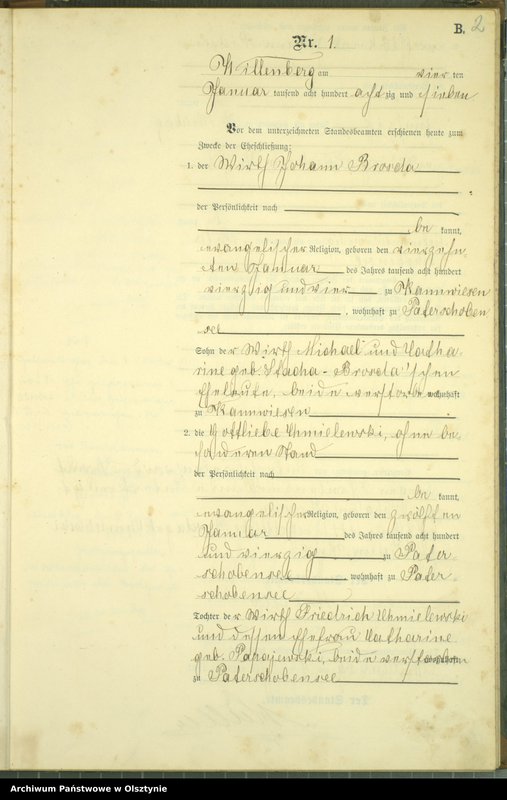 B. 2
Nr. 1.
Willenberg am vier ten
Januar tausend acht hundert achtzig und sieben
Vor dem unterzeichneten Standesbeamten erschienen heute zum
Zwecke der Eheschließung:
1. der Wirth Johann Brosda
der Persönlichkeit nach
be kannt,
evangelischer Religion, geboren den vierzehn
ten Januar des Jahres tausend acht hundert
vierzig und vier zu Kannwiesen
, wohnhaft zu Paterschoben
see
Sohn der Wirth Michael und Katha
rine geb. Stacha - Brosda'schen
Eheleute, beide verstorben wohnhaft
zu Kannwiesen
2. die Gottliebe Chmielewski, ohne be
sonderen Stand
der Persönlichkeit nach
be kannt,
evangelischer Religion, geboren den zwölften
Januar des Jahres tausend acht hundert
und vierzig zu Pater-
schobensee, wohnhaft zu Pater-
schobensee
Tochter der Wirth Friedrich Chmielewski
und dessen Ehefrau Katharine
geb. Parajewski, beide verstorben wohnhaft
zu Paterschobensee
Archiwum Państwowe w Olsztynie